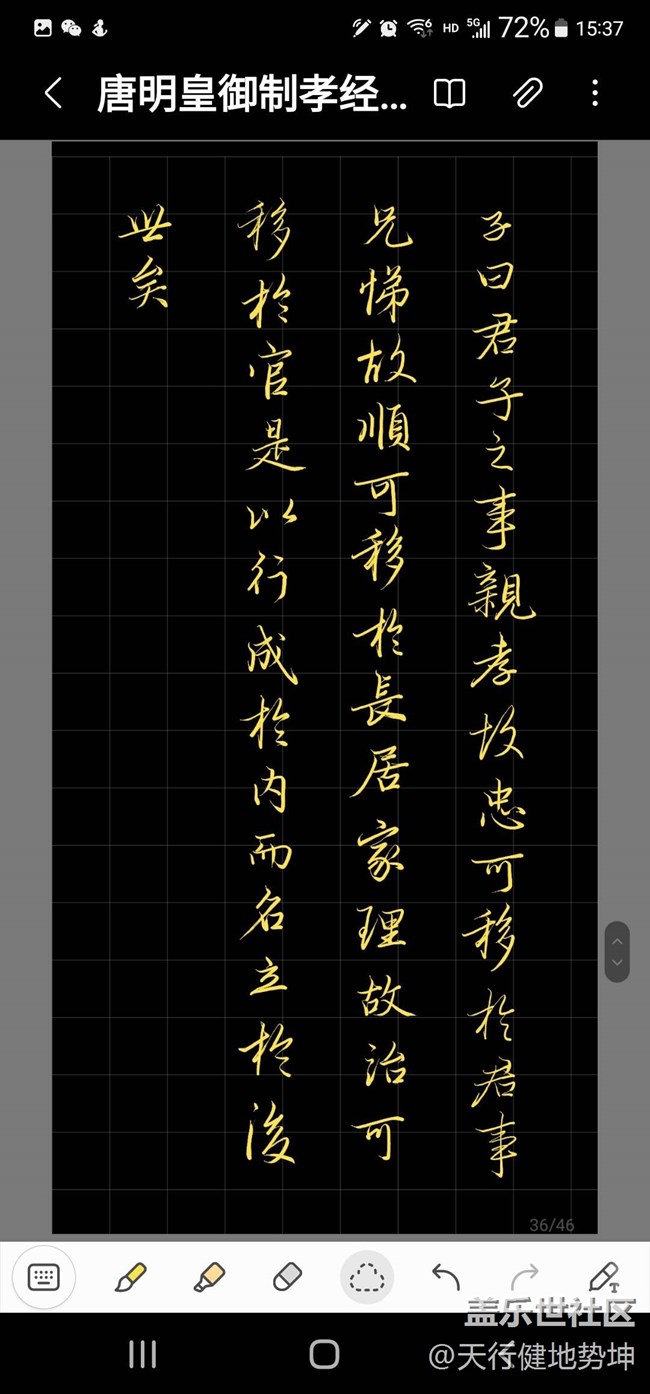 HD 5G 72% 15:37
唐明皇御制孝经...
子曰君子之事親孝故忠可移於君事
兄悌故順可移於長居家理故治可
移於官是以行成於内而名立於後
世矣
36/46
盖乐世社区
@天行健地势坤